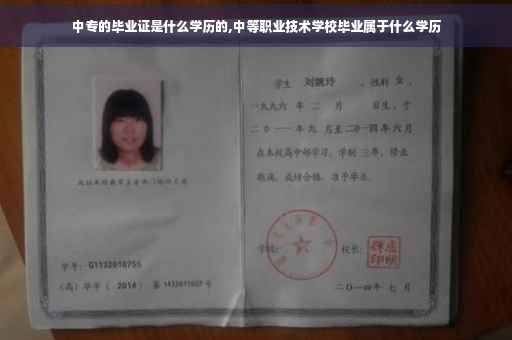 中专的毕业证是什么学历的,中等职业技术学校毕业属于什么学历
学生 刘婉玲 ，性别 女 ，
一九九六 年 二 月 日生，于
二〇一一 年 九 月至 二〇一四 年 六 月
在本校高中部学习，学制 三 年，修业
期满，成绩合格，准予毕业。
学校： 校长：
二〇一四年 七 月
学号： G1132010755
（高）毕字（ 2014 ）第 1432011007 号